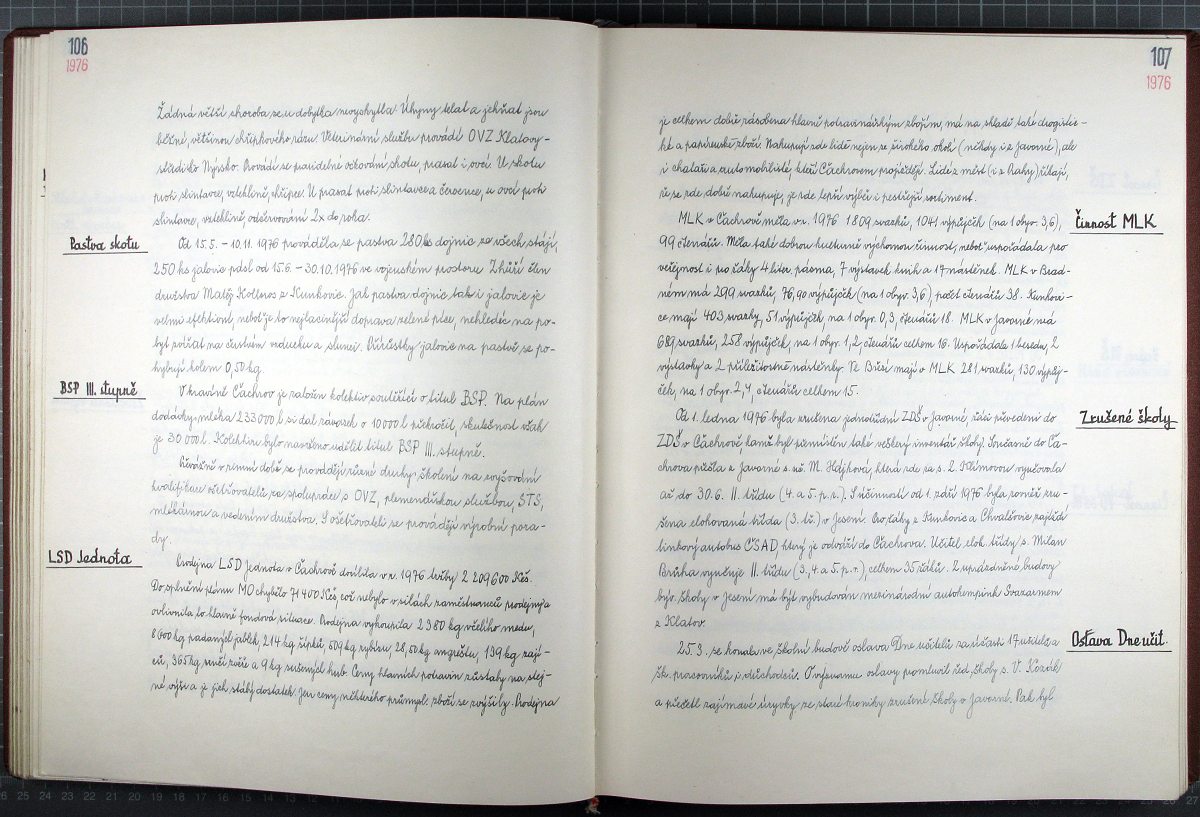 106
1976
Žádná větší choroba se u dobytka nevyskytla. Úhyny telat a jehňat jsou
běžné, většinou chřipkového rázu. Veterinární službu provádí OVZ Klatovy-
středisko Nýrsko. Provádí se pravidelné očkování skotu, prasat i ovcí. U skotu
proti slintavce, vzteklině, chřipce. U prasat proti slintavce a července, u ovcí proti
slintavce, vzteklině, odčervování 2x do roka.
Pastva skotu
Od 15.5. – 10.11. 1976 prováděla se pastva 280 ks dojnic ze všech stájí,
250 ks jalovic pásl od 15.6. – 30.10. 1976 ve vojenském prostoru Zhůří člen
družstva Matěj Kolteros z Kunkovic. Jak pastva dojnic tak i jalovic je
velmi efektivní, neboť je to nejlacinější doprava zelené píce, nehledíc na po-
byt zvířat na čerstvém vzduchu a slunci. Přírůstky jalovic na pastvě se po-
hybují kolem 0,50 kg.
BSP III. stupně
V kravíně Čachrov je založen kolektiv soutěžící o titul BSP. Na plán
dodávky mléka 233 000 l si dal závazek o 10 000 l překročit, skutečnost však
je 30 000 l. Kolektivu bylo navrženo udělit titul BSP III. stupně.
Převážně v zimní době se provádějí různé druhy školení na zvyšování
kvalifikace ošetřovatelů za spolupráce s OVZ, plemenářskou službou, STS,
mlékárnou a vedením družstva. S ošetřovateli se provádějí výrobní pora-
dy.
LSD Jednota
Prodejna LSD Jednota v Čachrově docílila v r. 1976 tržby 2 209 600 Kčs.
Do splnění plánu MO chybělo 71 400 Kčs, což nebylo v silách zaměstnanců prodejny a
ovlivnila to hlavně fondová situace. Prodejna vykoupila 2 380 kg včelího medu,
8 600 kg padaných jablek, 214 kg šípků, 509 kg rybízu, 28,50 kg angreštu, 139 kg zají-
ců, 365 kg srnčí zvěře a 9 kg sušených hub. Ceny hlavních potravin zůstaly na stej-
né výši a je jich stálý dostatek. Jen ceny některého průmysl. zboží se zvýšily. Prodejna
107
1976
je celkem dobře zásobena hlavně potravinářským zbožím, má na skladě také drogistic-
ké a papírenské zboží. Nakupují zde lidé nejen ze širokého okolí (někdy i z Javorné), ale
i chataři a automobilisté, kteří Čachrovem projíždějí. Lidé z měst (i z Prahy) říkají,
že se zde dobře nakupuje, je zde lepší výběr i pestřejší sortiment.
Činnost MLK
MLK v Čachrově měla v r. 1976 1 809 svazků, 1041 výpůjček (na 1 obyv. 3,6),
99 čtenářů. Měla také dobrou kulturně výchovnou činnost, neboť uspořádala pro
veřejnost i pro žáky 4 liter. pásma, 7 výstavek knih a 17 nástěnek. MLK v Brad-
ném má 299 svazků, 76,90 výpůjček (na 1 obyv. 3,6), počet čtenářů 38. Kunkovi-
ce mají 403 svazky, 51 výpůjček, na 1 obyv. 0,3, čtenářů 18. MLK v Javorné má
687 svazků, 258 výpůjček, na 1 obyv. 1,2, čtenářů celkem 16. Uspořádala 1 besedu, 2
výstavky a 2 příležitostné nástěnky. Ve Bůrší mají v MLK 281 svazků, 130 výpůj-
ček, na 1 obyv. 2,4, čtenářů celkem 15.
Zrušené školy
Od 1. ledna 1976 byla zrušena jednotřídní ZDŠ v Javorné, žáci převedeni do
ZDŠ v Čachrově, kamž byl přemístěn také veškerý inventář školy. Současně do Ča-
chrova přišla z Javorné s. uč. M. Hájková, která zde za s. Z. Klímovou vyučovala
až do 30.6. II. třídu (4. a 5. p. r.). S účinností od 1. září 1976 byla rovněž zru-
šena elokovaná třída (3. tř.) v Jesení. Pro žáky z Kunkovic a Chvalšovic zajíždí
linkový autobus ČSAD, který je odváží do Čachrova. Učitel elok. třídy s. Milan
Brůha vyučuje II. třídu (3., 4. a 5. p. r.), celkem 35 žáků. Z uprázdněné budovy
býv. školy v Jesení má být vybudován mezinárodní autokempink Svazarmem
z Klatov.
Oslava Dne učit.
25.3. se konala ve školní budově oslava Dne učitelů za účasti 17 učitelů a
šk. pracovníků i důchodců. O významu oslavy promluvil řed. školy s. V. Kozák
a přečetl zajímavé úryvky ze staré kroniky zrušené školy v Javorné. Pak byl